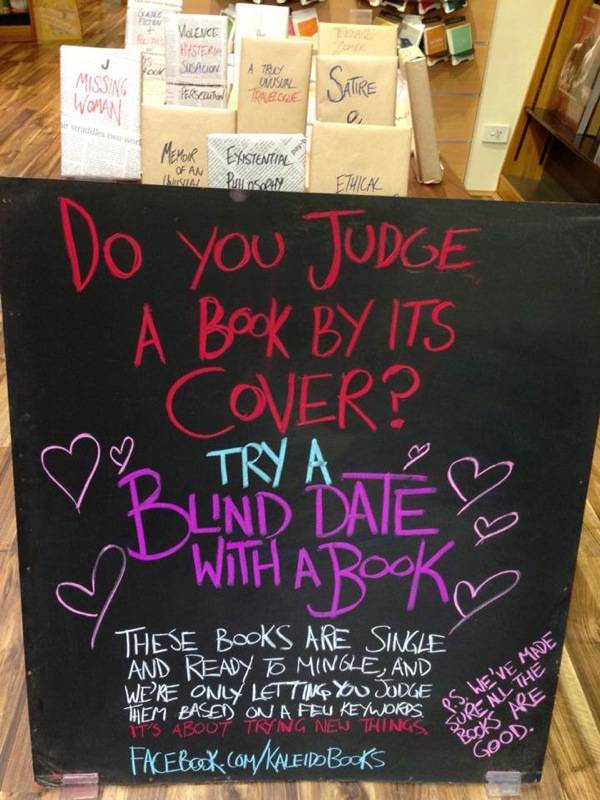 MISSING
WOMAN
VIOLENCE
HYSTERIA
SUSPICION
PERSECUTION
A TRULY
UNUSUAL
TRAVELOGUE
TEENAGE
ZOMBIE
SATIRE
MEMOIR
OF AN
UNUSUAL
EXISTENTIAL
PHILOSOPHY
ETHICAL
DO YOU JUDGE
A BOOK BY ITS
COVER?
TRY A
BLIND DATE
WITH A BOOK
THESE BOOKS ARE SINGLE
AND READY TO MINGLE, AND
WE'RE ONLY LETTING YOU JUDGE
THEM BASED ON A FEW KEYWORDS
IT'S ABOUT TRYING NEW THINGS.
FACEBOOK.COM/KALEIDOBOOKS
P.S. WE'VE MADE
SURE ALL THE
BOOKS ARE
GOOD.